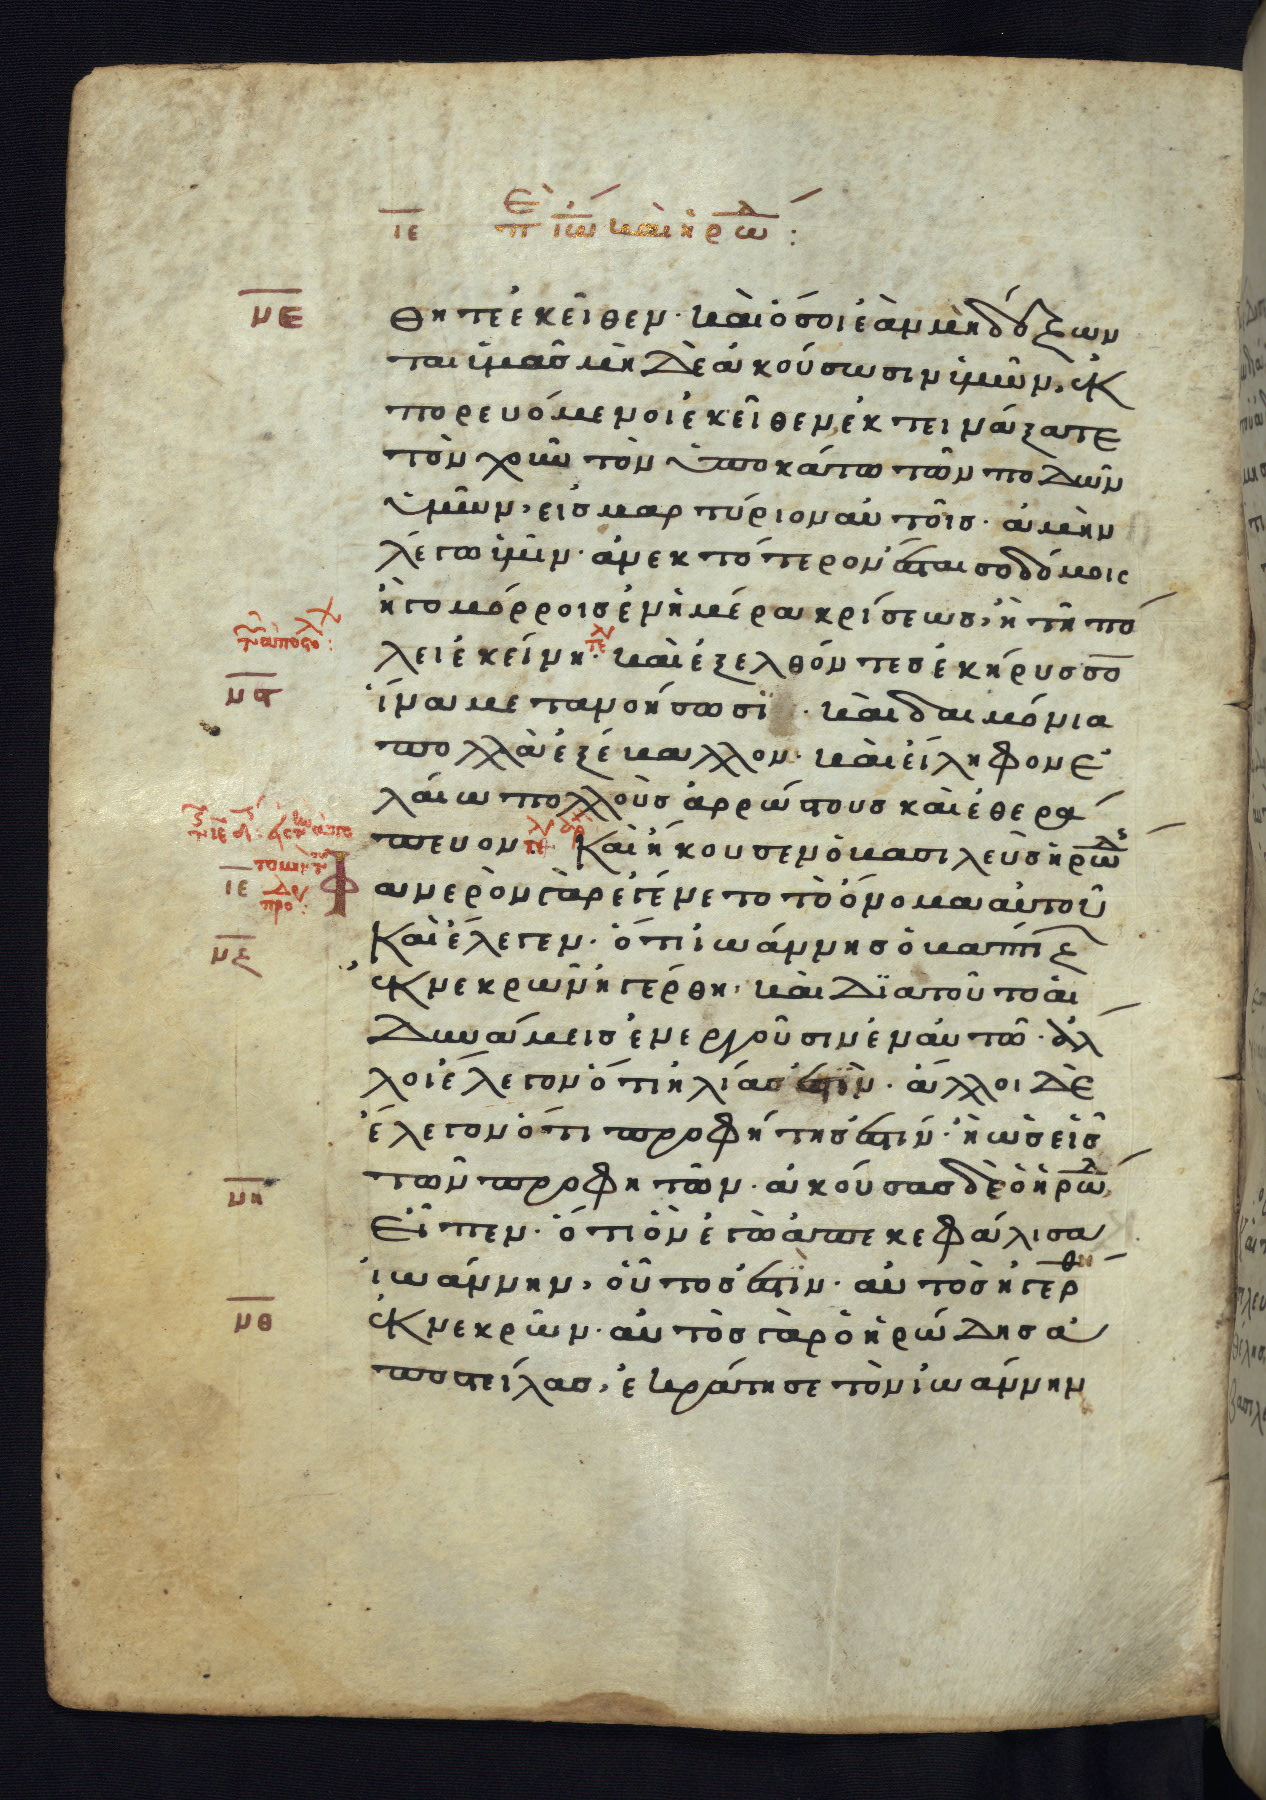 ιε περὶ ἰω καὶ ἡρωδ:
με θητε ἐκεῖθεν· καὶ ὅσοι ἐὰν μὴ δέξων
ται ὑμᾶς μηδὲ ἀκούσωσιν ὑμῶν, ἐκ
πορευόμενοι ἐκεῖθεν, ἐκτεινάξατε
τὸν χοῦν τὸν ὑποκάτω τῶν ποδῶν
ὑμῶν, εἰς μαρτύριον αὐτοῖς· ἀμὴν
λέγω ὑμῖν· ἀνεκτότερον ἔσται σοδόμοις
ἢ γομόρροις ἐν ἡμέρα κρίσεως, ἢ τῆ πό
λει ἐκείνη· τελ καὶ ἐξελθόντες ἐκήρυσσον
μς ἵνα μετανοήσωσϊ· καὶ δαιμόνια
πολλὰ ἐξέβαλλον· καὶ εἴληφον ἐ
λαίω πολλοὺς ἀρρώστους καὶ ἐθερά
πευον τελ Καὶ ἤκουσεν ὁ βασιλεὺς ἡρώδ
ιε φανερὸν γὰρ ἐγένετο τὸ ὄνομα αὐτοῦ
μζ Καὶ ἔλεγεν· ὅτι ἰωάννης ὁ βαπτίζ
ἐκ νεκρῶν ἠγέρθη, καὶ δϊατοῦτο αἱ
δυνάμεις ἐνεργοῦσιν ἐν αὐτῶ· ἄλ
λοι ἔλεγον ὅτι ἠλίας ἐστὶν· ἄλλοι δὲ
ἔλεγον ὅτι προφήτης ἐστὶν· ἢ ὡς εἷς
μη τῶν προφητῶν· ἀκούσας δὲ ὁ ἡρώδ,
Εἶπεν· ὅτι ὃν ἐγὼ ἀπεκεφάλισα
ἰωάννην, οὗτος ἐστϊν· αὐτὸς ἠγέρθη
μθ ἐκ νεκρῶν· αὐτὸς γὰρ ὁ ἡρώδης ἀ
ποστείλας, ἐκράτησε τὸν ἰωάννην